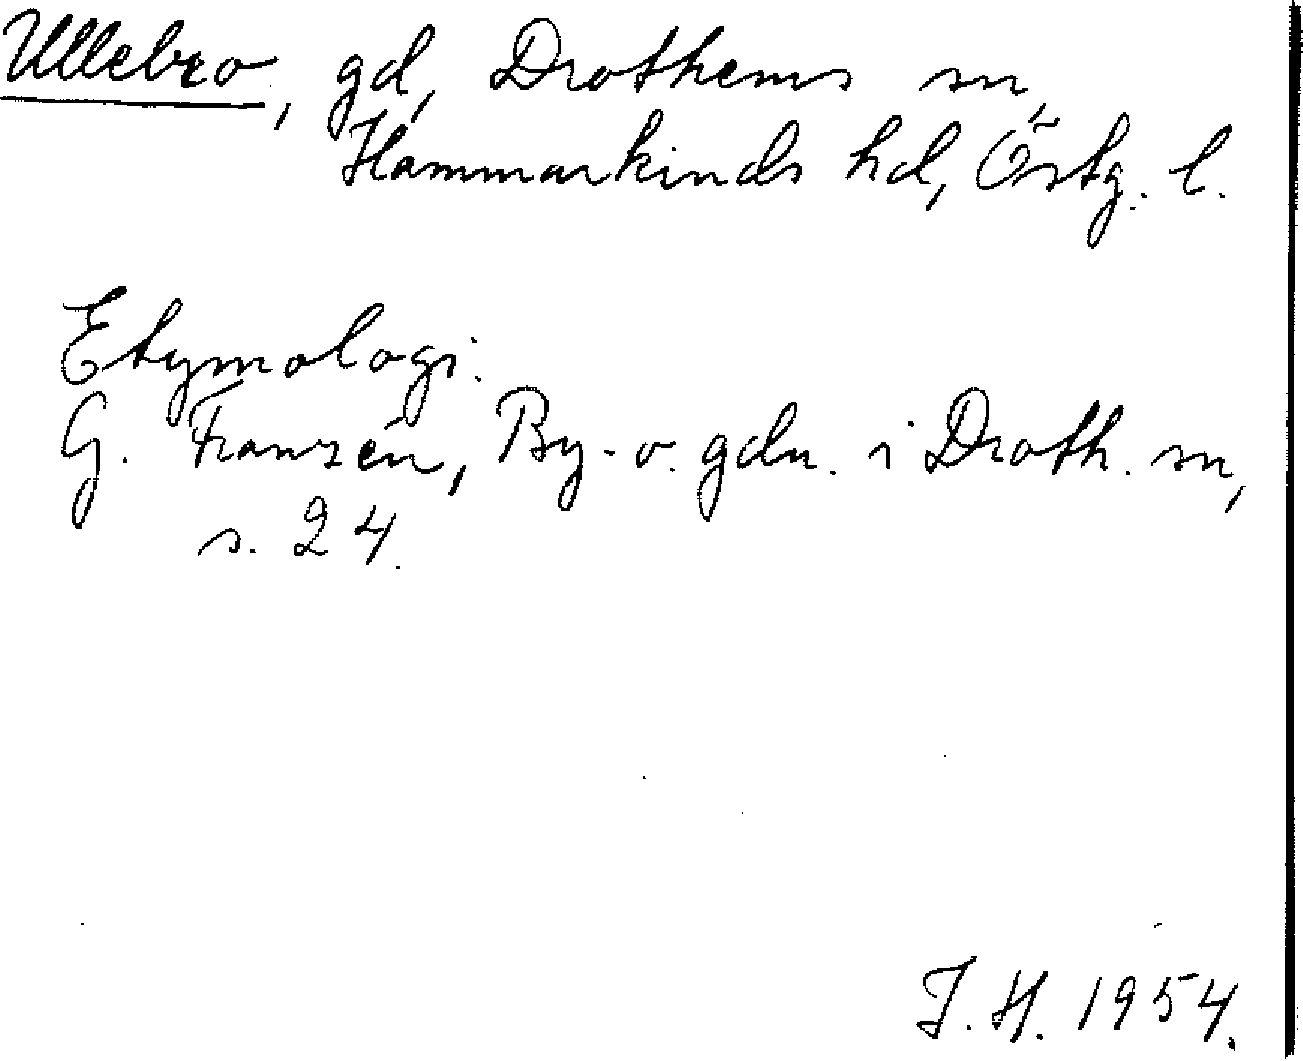 Ullebro, gd, Drothems sn,
Hammarkinds hd, Östg. l.
Etymologi:
G. Franzén, By- o. gdn. i Droth. sn,
s. 24.
J. H. 1954.